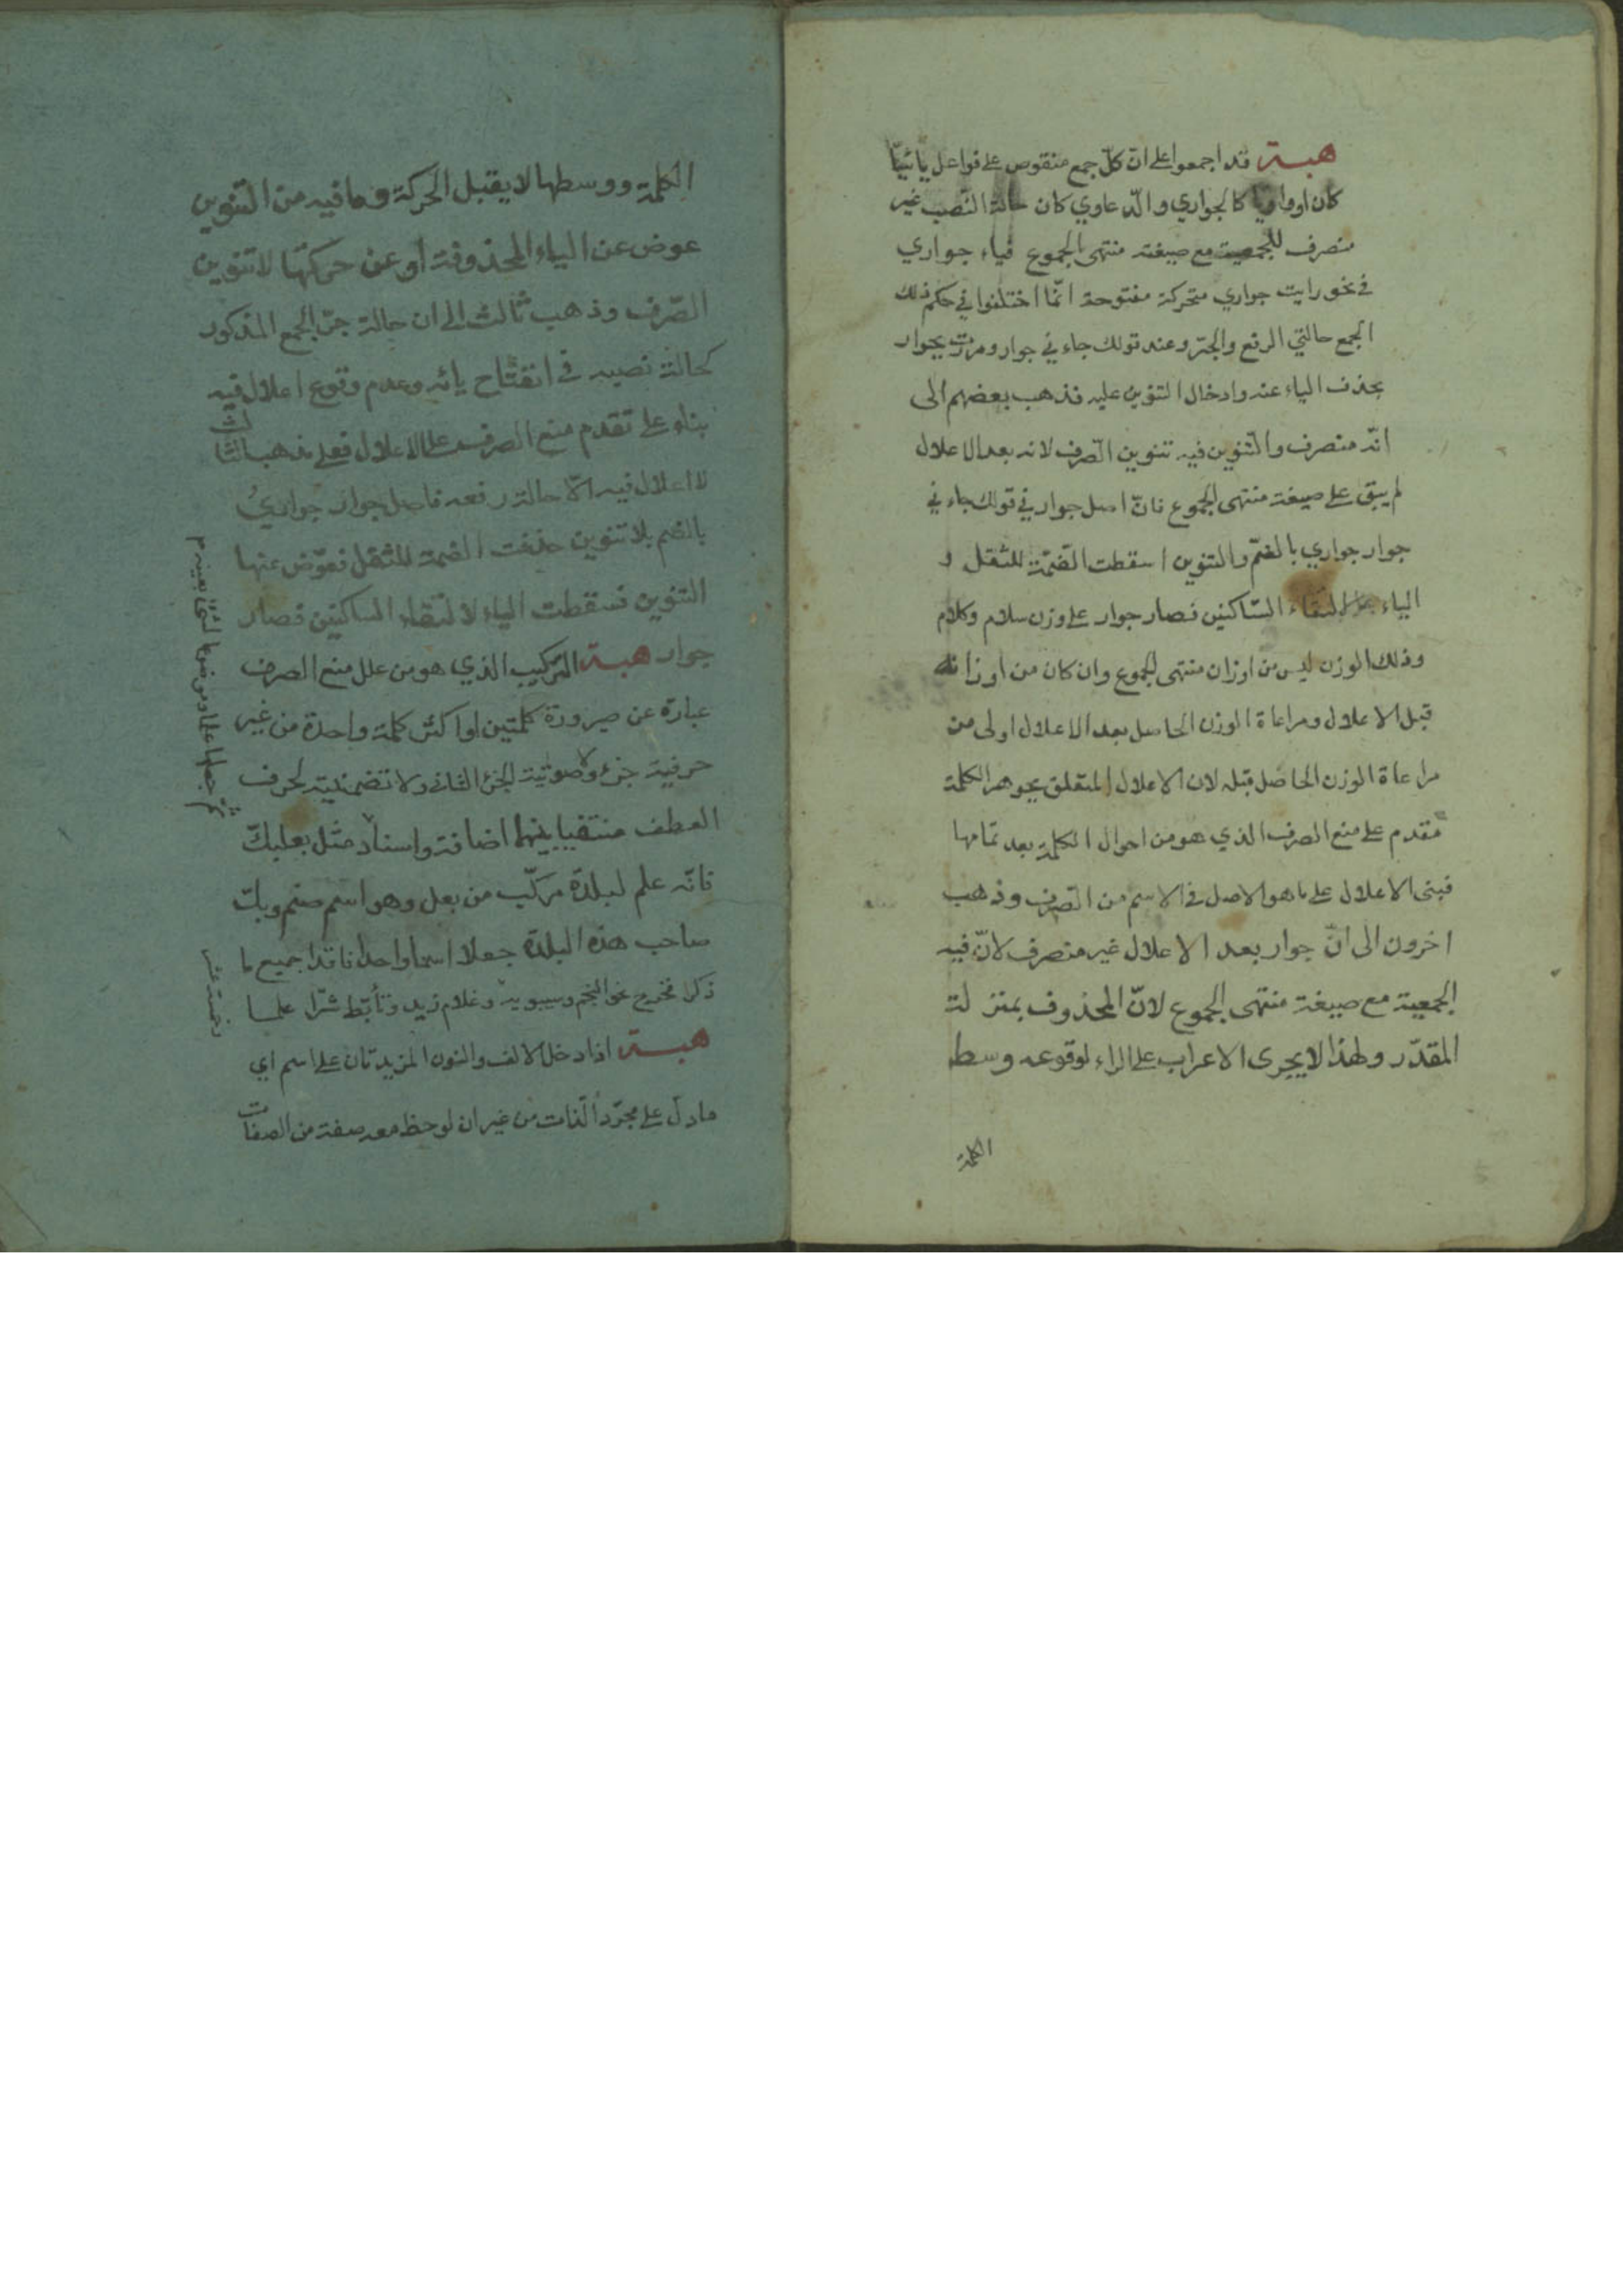 هبة قد اجمعوا على انّ كلّ جمع منقوص على فواعل يائيّا
كان او واويا كالجواري والدّعاوي كان حالة النّصب غير
منصرف للجمعية مع صيغة منتهى الجموع فياء جواري
في نحو رايت جواري متحركة مفتوحة انّما اختلفوا في حكم ذلك
الجمع حالتي الرفع والجرّ وعند قولك جاءني جوار ومررت بجوار
بحذف الياء عنه وادخال التنوين عليه فذهب بعضهم الى
انّه منصرف والتّنوين فيه تنوين الصّرف لانه بعد الاعلال
لم يبق على صيغة منتهى الجموع فانّ اصل جوار في قولك جاءني
جوار جواري بالضمّ والتنوين اسقطت الضّمّة للثقل و
الياء لالتقاء السّاكنين فصار جوار على وزن سلام وكلام
وذلك الوزن ليس من اوزان منتهى الجموع وان كان من اوزانه
قبل الاعلال ومراعاة الوزن الحاصل بعد الاعلال اولى من
مراعاة الوزن الحاصل قبله لان الاعلال المتعلق بجوهر الكلمة
مقدم على منع الصرف الذي هو من احوال الكلمة بعد تمامها
فبنى الاعلال على ما هو الاصل في الاسم من الصّرف وذهب
اخرون الى انّ جوار بعد الاعلال غير منصرف لانّ فيه
الجمعية مع صيغة منتهى الجموع لانّ المحذوف بمنزلة
المقدّر ولهذا لا يجرى الاعراب على الراء لوقوعه وسط
الكلمة
الكلمة ووسطها لا يقبل الحركة وما فيه من التّنوين
عوض عن الياء المحذوفة او عن حركتها لا تنوين
الصّرف وذهب ثالث الى ان حالة جرّ الجمع المذكور
كحالة نصبه في انفتاح يائه وعدم وقوع اعلال فيه
بناء على تقدم منع الصرف على الاعلال فعلى مذهب الثالث
لا اعلال فيه الّا حالة رفعه فاصل جوار جواريُ
بالضم بلا تنوين حذفت الضمة للثقل فعوّض عنها
التنوين فسقطت الياء لالتقاء الساكنين فصار
جوار هبة التركيب الذي هو من علل منع الصرف
عبارة عن صيرورة كلمتين او اكثر كلمة واحدة من غير
حرفية جزء ولا صوتية الجزء الثاني ولا تضمنية لحرف
العطف منتفيا بينهما اضافة واسناد مثل بعلبكّ
فانّه علم لبلدة مركّب من بعل وهو اسم صنم وبكّ
صاحب هذه البلدة جعلا اسما واحدا فاقدا جميع ما
ذكر فخرج نحو النجم وسيبويه وغلام زيد وتأبّط شرّا علما
هبة اذا دخل الالف والنون المزيدتان على اسم اي
ما دلّ على مجرّد الذات من غير ان لوحظ معه صفة من الصفات
وخمسة عشر